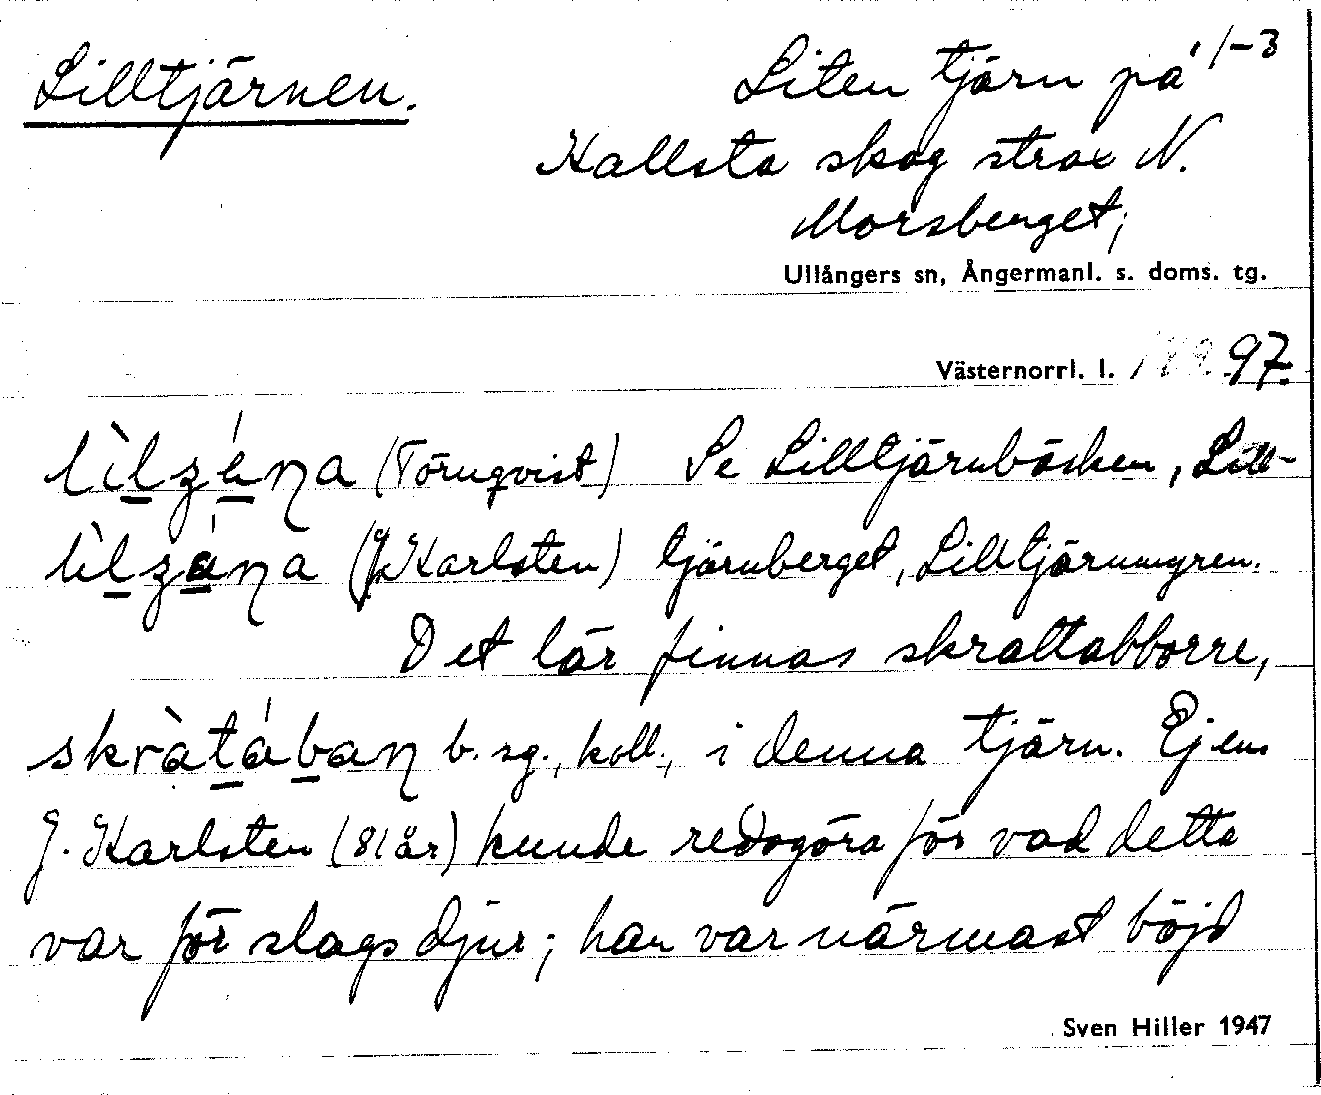 Lilltjärnen.
Liten tjärn på 1-3
Kallsta skog strax N.
Morsberget;
Ullångers sn, Ångermanl. s. doms. tg.
Västernorrl. l. 97.
(Törnqvist) Se Lilltjärnbäcken, Lill-
(J. Karlsten) tjärnberget, Lilltjärnmyren.
Det lär finnas skrattabborre,
b. sg., koll., i denna tjärn. Ej ens
J. Karlsten (81 år) kunde redogöra för vad detta
var för slags djur; han var närmast böjd
Sven Hiller 1947